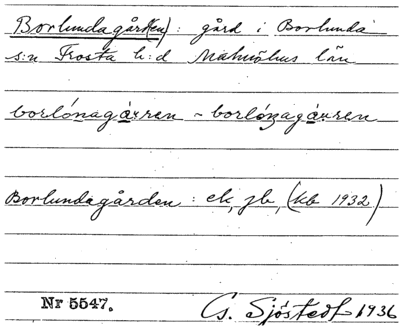 Borlundagård(en): gård i Borlunda
s:n Frosta h:d Malmöhus län
borlónagárren ~ borlónagárren
Borlundagården: ek, jb, (kb 1932)
Nr 5547. G. Sjöstedt 1936